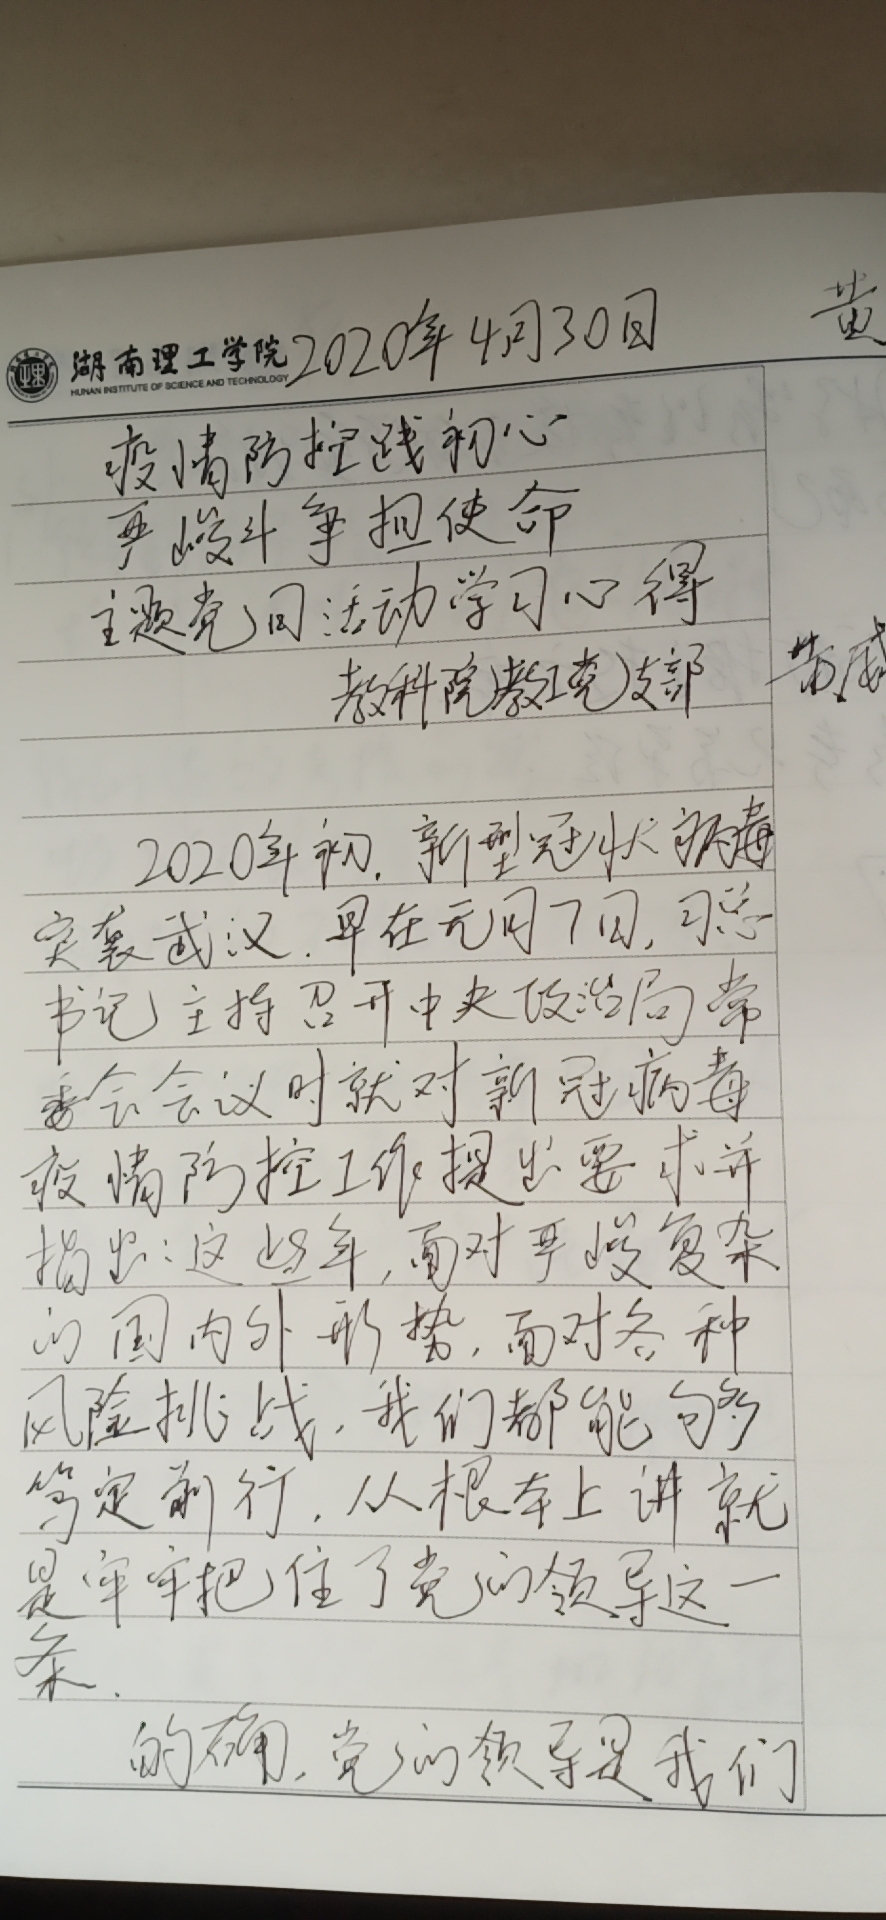 湖南理工学院 2020年4月30日 黄
HUNAN INSTITUTE OF SCIENCE AND TECHNOLOGY
疫情防控践初心
严峻斗争担使命
主题党日活动学习心得
教科院教工党支部
2020年初,新型冠状病毒
突袭武汉,早在元月7日,习总
书记主持召开中央政治局常
委会会议时就对新冠病毒
疫情防控工作提出要求并
指出:这些年,面对严峻复杂
的国内外形势,面对各种
风险挑战,我们都能够
笃定前行,从根本上讲就
是牢牢把住了党的领导这一
条.
的确,党的领导是我们